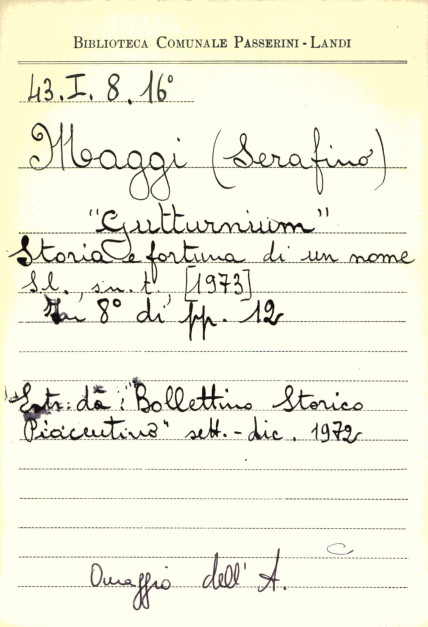 BIBLIOTECA COMUNALE PASSERINI-LANDI
43.I.8.16°
Maggi (Serafino)
"Gutturnium"
Storia e fortuna di un nome
S.l., s.n.t, [1973]
In 8° di pp. 12
Estr. da: "Bollettino Storico
Piacentino" sett.-dic. 1972
Omaggio dell' A.